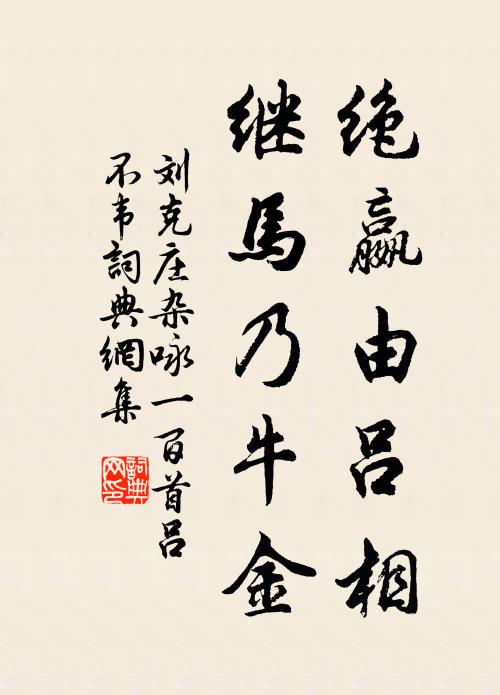 绝嬴由吕相
继馬乃牛金
刘克庄杂咏一百首吕
不韦詞典網集
詞典网印